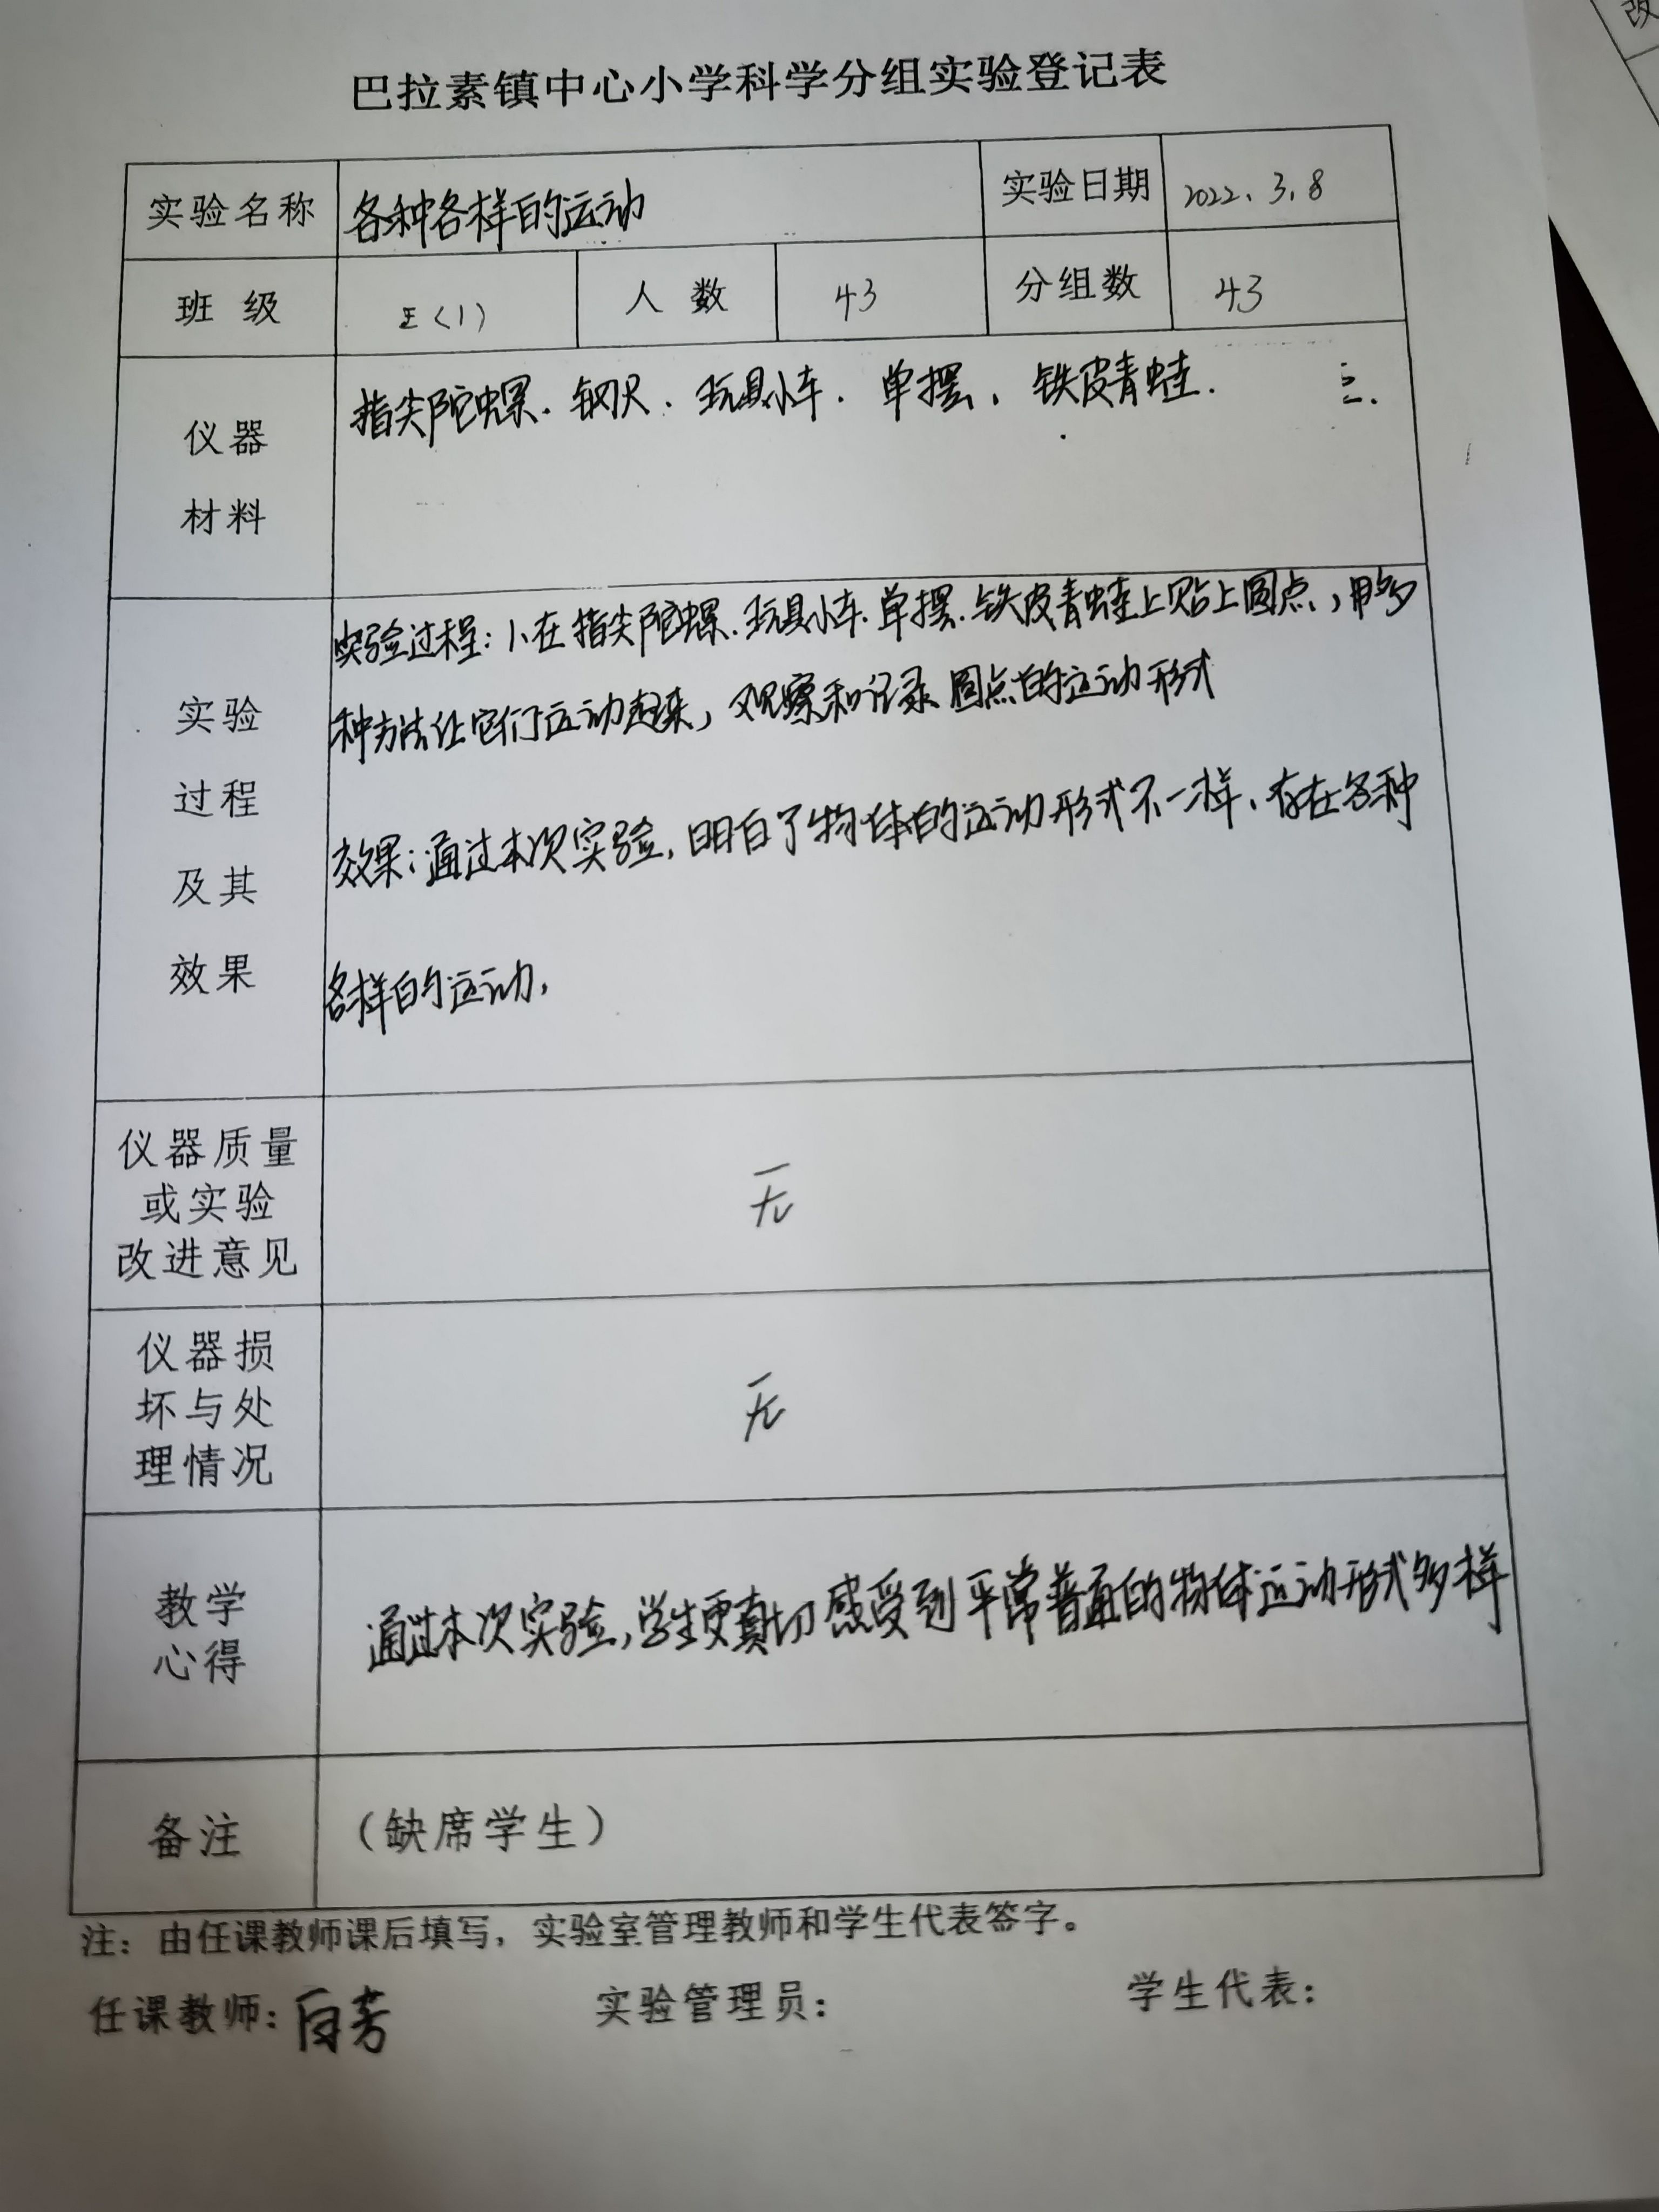 巴拉素镇中心小学科学分组实验登记表
实验名称 各种各样的运动 实验日期 2022、3、8
班 级 (1) 人 数 43 分组数 43
仪器
材料
指尖陀螺、钢尺、玩具小车、单摆、铁皮青蛙.
实验
过程
及其
效果
实验过程：1、在指尖陀螺、玩具小车、单摆、铁皮青蛙上贴上圆点，用多
种方法让它们运动起来，观察和记录圆点的运动形式
效果：通过本次实验，明白了物体的运动形式不一样、存在各种
各样的运动，
仪器质量
或实验
改进意见
无
仪器损
坏与处
理情况
无
教学
心得
通过本次实验，学生更真切感受到平常普通的物体运动形式多样
备注
（缺席学生）
注：由任课教师课后填写，实验室管理教师和学生代表签字。
任课教师：白芳 实验管理员： 学生代表：
改